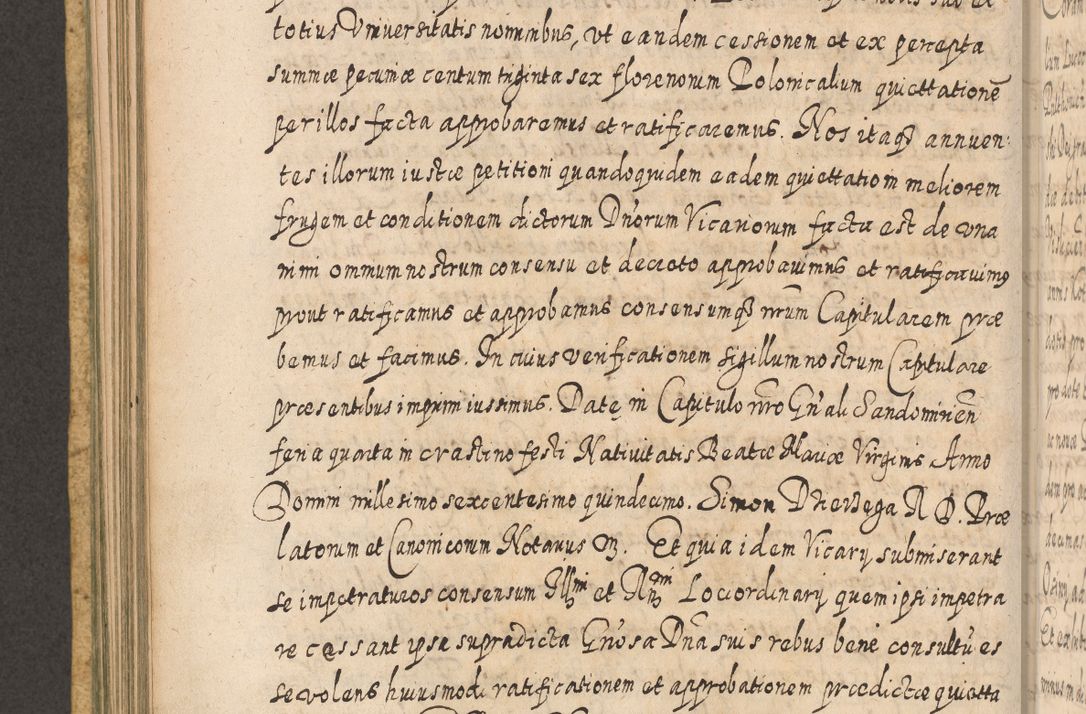 totius Universitatis nominibus, ut eandem cessionem et ex percepta
summæ pecuniæ centum triginta sex florenorum Polonicalium quiettationē
per illos facta approbaremus et ratificaremus. Nos itaq annuen:
tes illorum iustæ petitioni quandoquidem eadem quiettatiom meliorem
frugem et conditionem dictorum Dn̄orum Vicariorum facta est de una
nimi omnium nostrum consensu et decreto approbavimus et ratificavimus
prout ratificamus et approbamus consensumq nr̄um Capitularem præ
bemus et facimus. In cuius verificationem sigillum nostrum Capitulare
præsentibus imprimi iussimus. Datę in Capitulo nr̄o Gn̄ali Sandomirien̄
feria quarta in crastino festi Nativitatis Beatæ Mariæ Virginis Anno
Domini millesimo sexcentesimo quindecimo. Simon R D. Præ
latorum et Canonicorum Notarius m. Et quia idem Vicary submiserant
se impetraturos consensum Illmi et Rmi Loci ordinarij quem ipsi impetra
re cessant ipsa supradicta Gn̄osa Dn̄a suis rebus bene consultū es
se volens huiusmodi ratificationem et approbationem prædictæ quietta